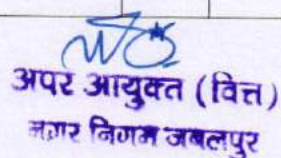 अपर आयुक्त (वित्त)
नगर निगम जबलपुर